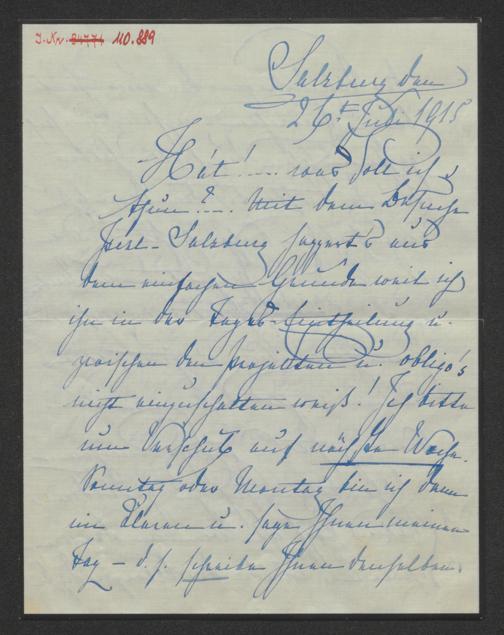 J. Nr. 84774 110.889
Salzburg den
26t Juli 1915
Hát! ... was soll ich
thun? ... Mit dem Besuche
Salzburg happert's aus
dem einfachen Grunde weil ich
ihn in der Tages-Eintheilung u.
zwischen den Projekten u. obligo's
nicht einzuschalten weiß! Ich bitte
um Verschub auf nächste Woche.
Sonntag oder Montag bin ich dann
im Klaren u. sage Ihnen meinen
Tag – d. h. schreibe Ihnen denselben.